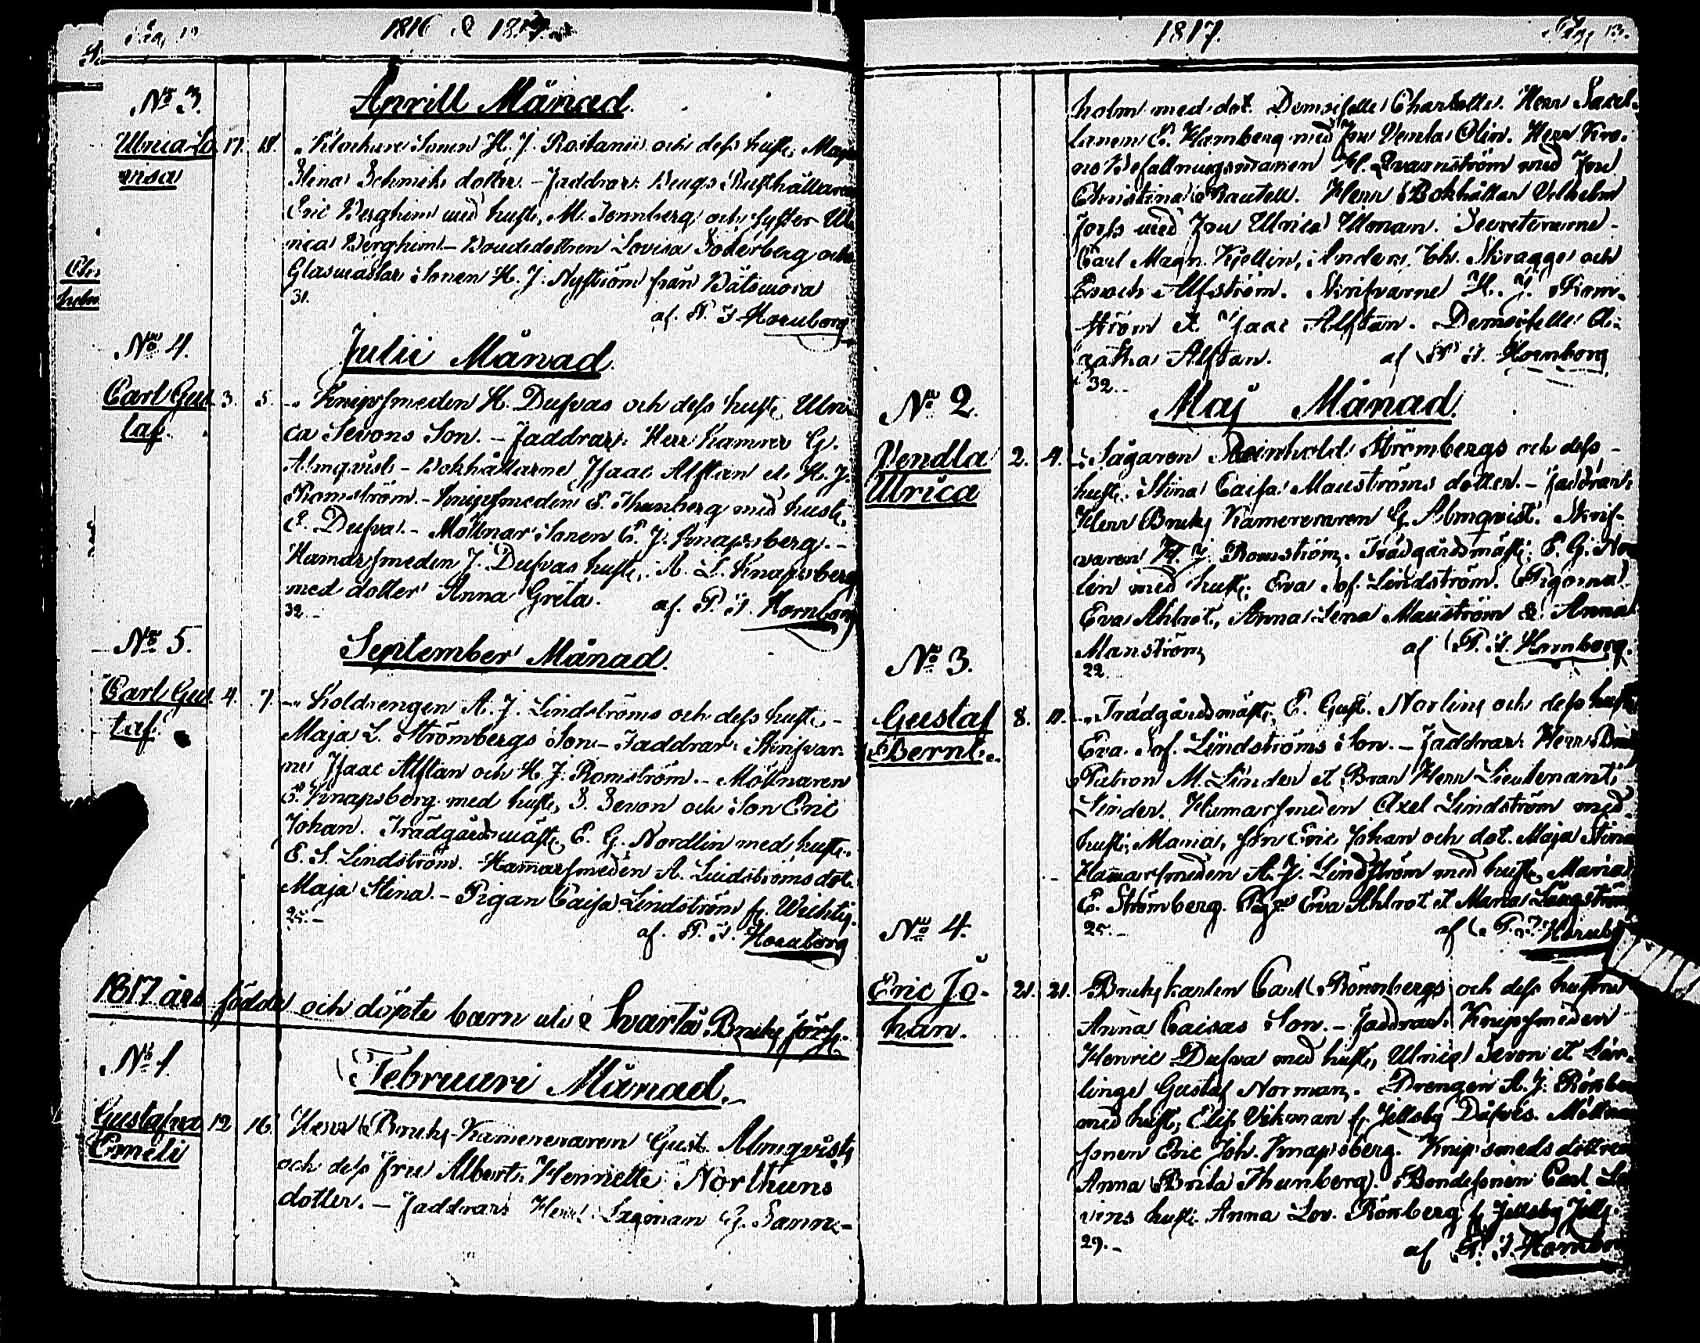 Pag. 12
1816 & 1817.
No 3.
Aprill Månad.
Ulrica Lo 17. 18.
visa
Klockare Sonen H. J. Rostanii och dess hust. Maja
Stina Schmiks dotter. – Faddrar: Brugs Rusthållaren
Eric Berghem med hust. M. Tennberg och syster Ul
rica Berghem – Bondedottren Lovisa Söderberg och
Glasmästar Sonen H. J. Nyström från Båtsmora
31.
af P. J. Hornborg
No 4.
Julii Månad
Carl Gus 3. 5.
taf.
Knipsmeden H. Dufvas och dess hust. Ulri
ca Sevons Son. – Faddrar: Herr Kamrer G.
Almqvist – Bokhållarne Isaac Alftan et H. J.
Romström. – Knipsmeden E. Thunberg med hust.
E. Dufva. – Möllnar Sonen E. J. Knapsberg. –
Hamarsmeden J. Dufvas hust. A. L. Knapsberg
med dotter Anna Greta.
af. P. J. Hornborg
32.
No 5.
September Månad.
Carl Gus 4. 7.
taf.
Koldrengen A. J. Lindströms och dess hust. –
Maja L. Strömbergs Son – Faddrar: Skrifvar
ne Isaac Alftan och H. J. Romström. – Möllnaren
E. Knapsberg med hust. S. Sevon och Son Eric
Johan. Trädgårdsmäst. E. G. Nordlin med hust.
E. S. Lindström. Hammarsmeden A. Lindströms dot.
Maja Stina. – Pigan Caisa Lindström fr. Wichtis.
25. –
af. P. J. Hornborg
1817 års födde och döpte barn uti Svartå Bruks förs.
No 1.
Februari Månad.
Gustafva 12 16.
Emeli
Herr Bruks Kamereraren Gust. Almqvists
och dess fru Albert. Henriette Northuns
dotter. – Faddrar: Herr Lagman G. Sanme-
1817.
Pag. 13.
holm med dot. Demoiselle Charlotte. Herr Sacel-
lanen E. Hamberg med fru Vendla Olin. Herr Kro-
no Befallningsmannen H. Qvarnström med fru
Christina Rautell. Herr Bokhållar Vilhelm
Forss med fru Ulrica Ulman. Secreterarne
Carl Magn. Kjellin, Anders Th. Skragge och
Enoch Alfström. Skrifvarne H. J. Rom-
ström et Isaac Alftan. Demoiselle A-
gatha Alftan.
af P. J. Hornborg
32.
No 2.
Maj Månad.
Vendla 2. 4.
Ulrica
Sågaren Reinhold Strömbergs och dess
hust. Stina Caisa Manströms dotter. – Faddrar:
Herr Bruks Kamereraren G. Almqvist. Skrif-
varen H. J. Romström. Trädgårdsmäst. E. G. Nor
lin med hust. Eva Sof. Lindström. Pigorna
Eva Ahlrot, Anna Lena Manström & Anna
Manström
af P. J. Hornborg.
22.
No 3.
Gustaf 8. 11.
Bernt.
Trädgårdsmäst. E. Gust. Norlins och dess hust
Eva Sof. Lindströms Son. – Faddrar: Herr Bruks
Patron M. Linder et Bror Herr Lieutenant
Linder. Hamarsmeden Axel Lindström med
hust. Maria, son Eric Johan och dot. Maja Stina
Hammarsmeden A. J. Lindström med hust. Maria
E. Strömberg. Pigor Eva Ahlrot et Maria Långström
25. –
af P. J. Hornbo
No 4.
Eric Jo- 21. 21.
han.
Bruks karlen Carl Rönnbergs och dess hustru
Anna Caisas Son. – Faddrar: Knipsmeden
Henric Dufva med hust. Ulrica Sevon et Lär-
linge Gustaf Norman. Drengen A. J. Rönber
med hust. Elis Vikman fr. Jellsby Dåfvis. Möllnar
sonen Eric Joh. Knapsberg. Knipsmeds dottren
Anna Brita Thunberg. Bondesonen Carl La
vens hust. Anna Lov. Rönberg fr. Jellsby Jells.
29. –
af P. J. Hornbor